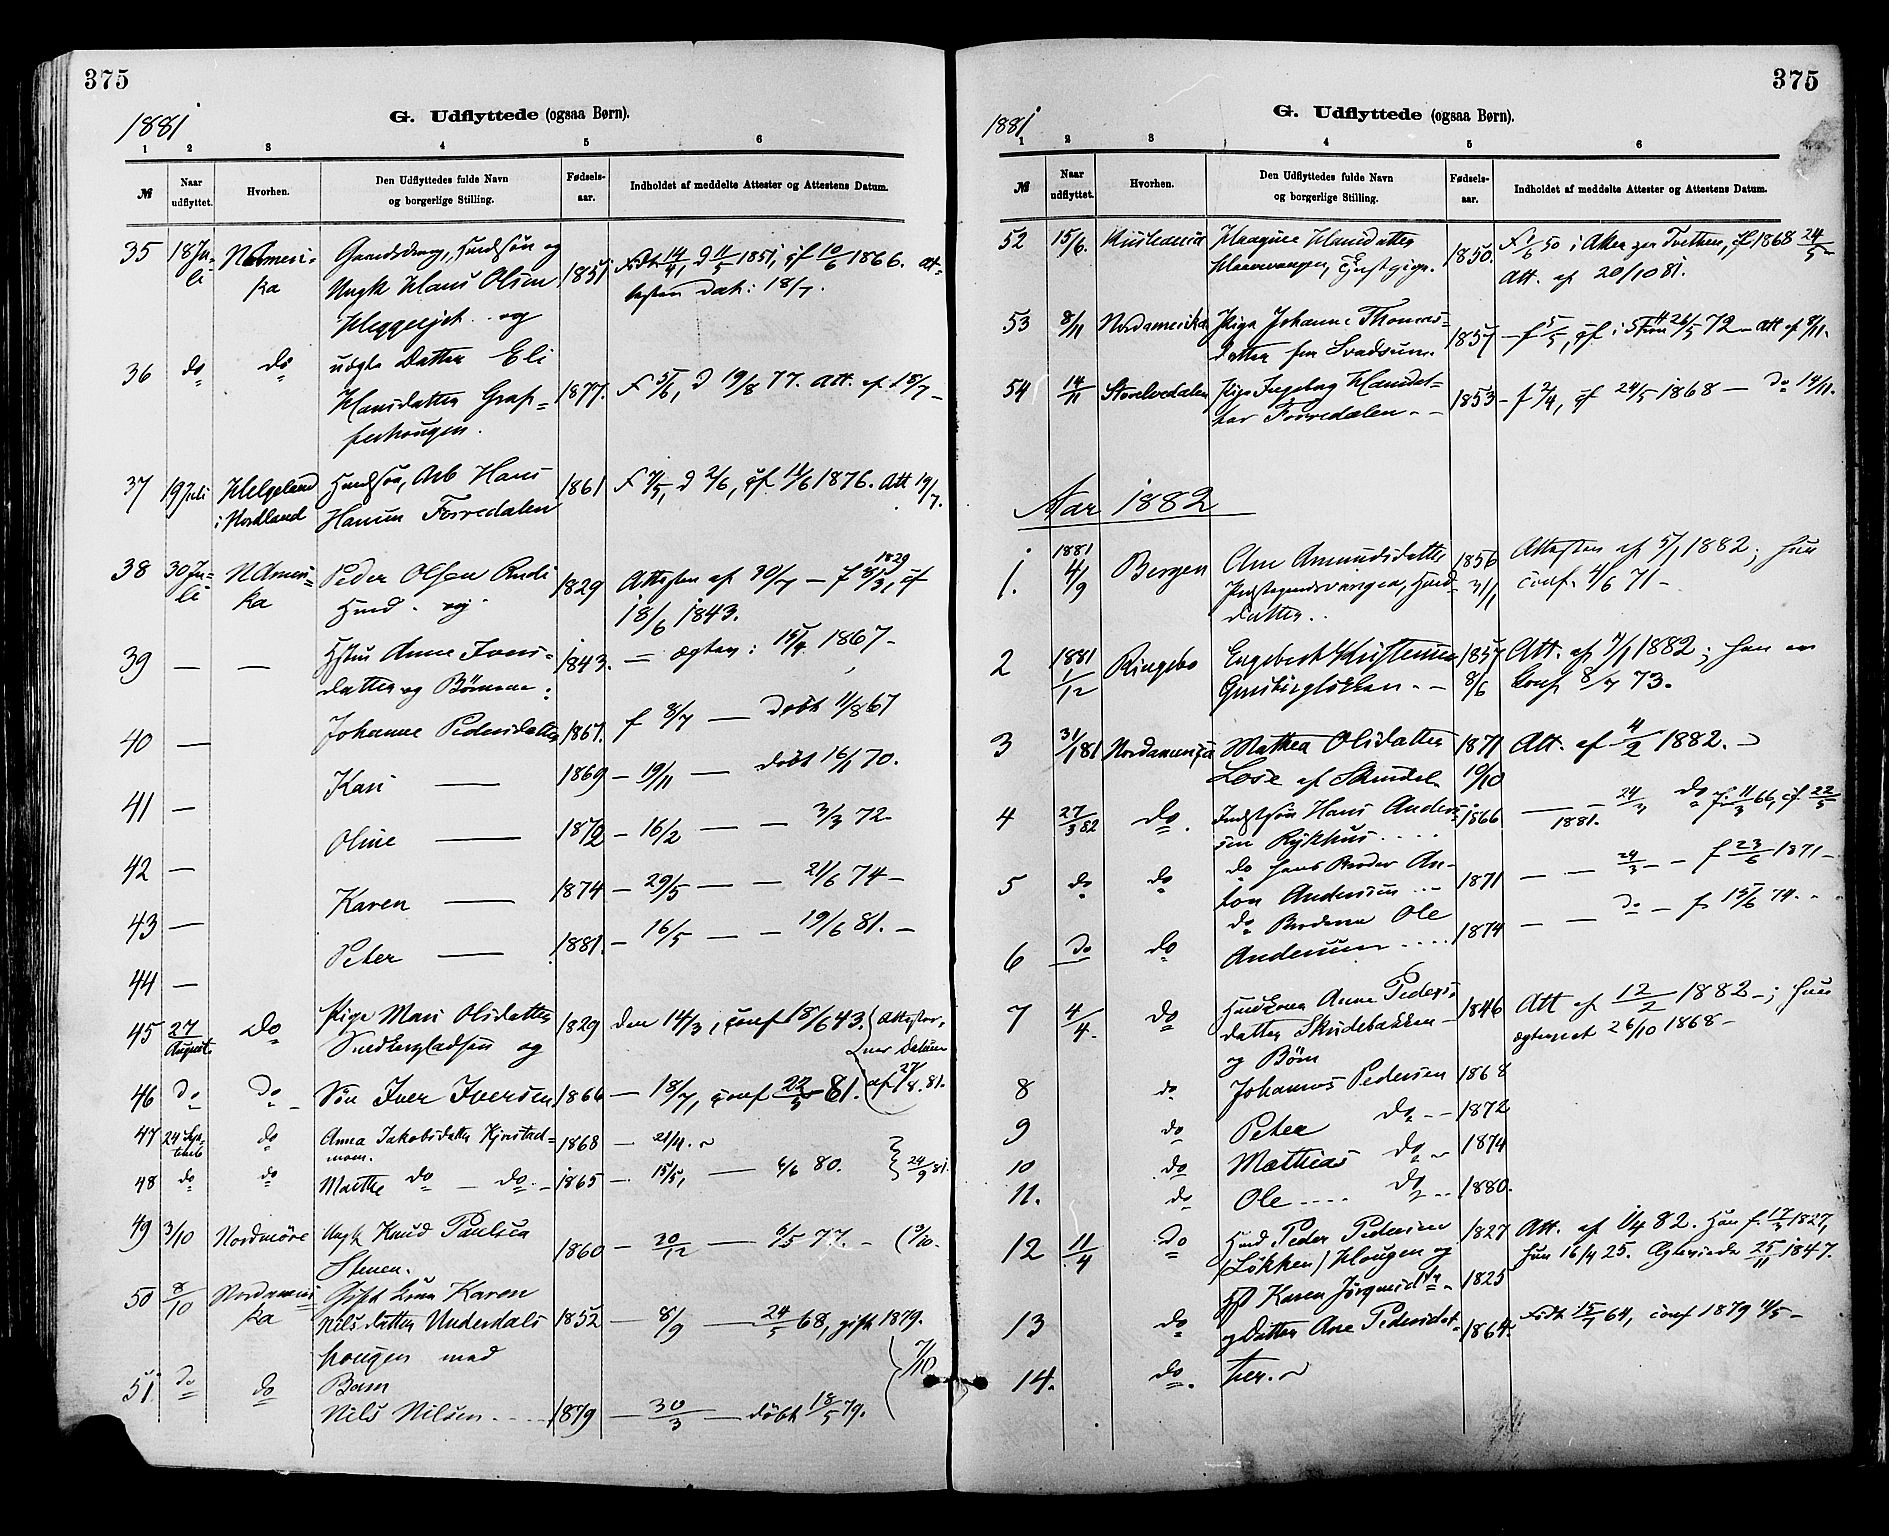 375
1881
G. Udflyttede (ogsaa Børn).
1 2 3 4 5 6
№ Naar udflyttet. Hvorhen. Den Udflyttedes fulde Navn og borgerlige Stilling. Fødsels-aar. Indholdet af meddelte Attester og Attestens Datum.
35 18 Ju- NAmeri- og
li ka Ungk Hans Olsen 1851 Født 14/4, D 11/5 1851, cf 10/6 1866. At-
og testen dat: 18/7.
36 do do uægte Datter Eli
Hansdatter Graf- 1877. F 5/6, D 19/8 77. Att. af 18/7 –
ferhougen.
37 19 Juli Helgeland Husm.søn, Arb Hans 1861 D 2/6, cf 11/6 1876. Att 19/7.
i Nordland Hansen Forredalen
38 30 Ju- NAmeri- Peder Olsen 1829 Attesten af 30/7 – f 1829, cf
li ka Husmd. og 18/6 1843.
39 — — Hstru Anne Ivers- 1843. – ægtev: 15/4 1867 –
datter og Børnene:
40 — Johanne Pedersdatter 1867. f 8/7 — Døbt 11/8 67
41 — Kari — 1869 – 19/11 — døbt 16/1 70.
42 — Oline — 1872 – 16/2 — — 3/3 72 –
43 — Karen — 1874 – 29/5 — — 21/6 74 –
44 — Peter — 1881. – 16/5 — — 19/6 81. –
45 27 August Do Pige Mari Olsdatter 1829 den 14/3, conf 18/6 43. Attester-
og nes Datum
46 do Do Søn Iver Iversen 1866 — 18/7, conf 22/5 81. af 27/8. 81.
47 24 Sep- do Anna Jakobsdatter Kjørstad- 1868 – 21/4.
temb moen.
48 do do Marthe do – do. – 1865 – 15/5, — 6/6 80. 24/9 81.
49 3/10 Nordmøre Ungk Knud Paulsen 1860 – 20/12 — 6/5 77. – (3/10.
Steen.
50 8/10 Nordameri- Gift Kone Karen
ka Nilsdatter Underdals- 1852 — 8/9 — 24/5 68, gift 1879.
hougen med 7/10
51 do do Barn
Nils Nilsen 1879 — 30/3 — døbt 18/5 79.
375
1881
G. Udflyttede (ogsaa Børn).
1 2 3 4 5 6
№ Naar udflyttet. Hvorhen. Den Udflyttedes fulde Navn og borgerlige Stilling. Fødsels-aar. Indholdet af meddelte Attester og Attestens Datum.
52 15/6. Kristiania Hansdatter 1850. F 1/6 50 i Aker, cf 1868 24/5 –
Att. af 20/10 81.
53 8/11 Nordamerika Pige Johanne Thomas- 1857 – f 5/5, cf 26/5 72 – att af 8/11.
datter fra Svadsum.
54 14/11 Storelvedalen Pige Ingeborg Hansdat- 1853 – f 2/4, cf 24/5 1868 — Do 14/11.
ter Forredalen. –
Aar 1882
1. 1881 4/9 Bergen Ane Amundsdatter 1856 Attesten af 5/1 1882; hun
Præstegaardsvangen, Husm.- conf. 4/6 71 –
datter.
2 1881 1/12 Ringebo Engebret Kristensen 1857 Att. af 7/1 1882; han er
8/6 Conf 8/7 73.
3 31/1 81 Nordamerika Mathea Olsdatter 1871 Att. af 4/2 1882. –
10/10
4 27/3 82 Do. Hans Anders- 1866 — 1881. – 24/3 do f. 11/3 66, cf 22/5
sen Rykhus
5 do do do hans Broder An- 1871 — — 24/3 – – f 23/6 1871 –
ton Andersen
6 Do do do Broderen Ole 1874 — — do – f 15/6 74.
Andersen
7 4/4. do Husm.kone Anne Peders- 1846 Att af 12/2 1882 –; hun
datter Skridebakken – ægteviet 26/10 1868 –
og Børn
8 do Johannes Pedersen 1868
9 do Peter Do – 1872
10 do Mathias do – 1874
11. do Ole do – 1880.
12 11/4 Do Husmd Peder Pedersen 1827 Att. af 1/4 82. Han f. 17/3 1827,
(Løkken) Hougen og hun 16/4 25. Ægteviede 25/11 1847.
13 do Hst Karen Jørgensdtr 1825
og Datter Ane Pedersdat- 1864 Født 15/7 64, conf 1879 –
14. do. ter.